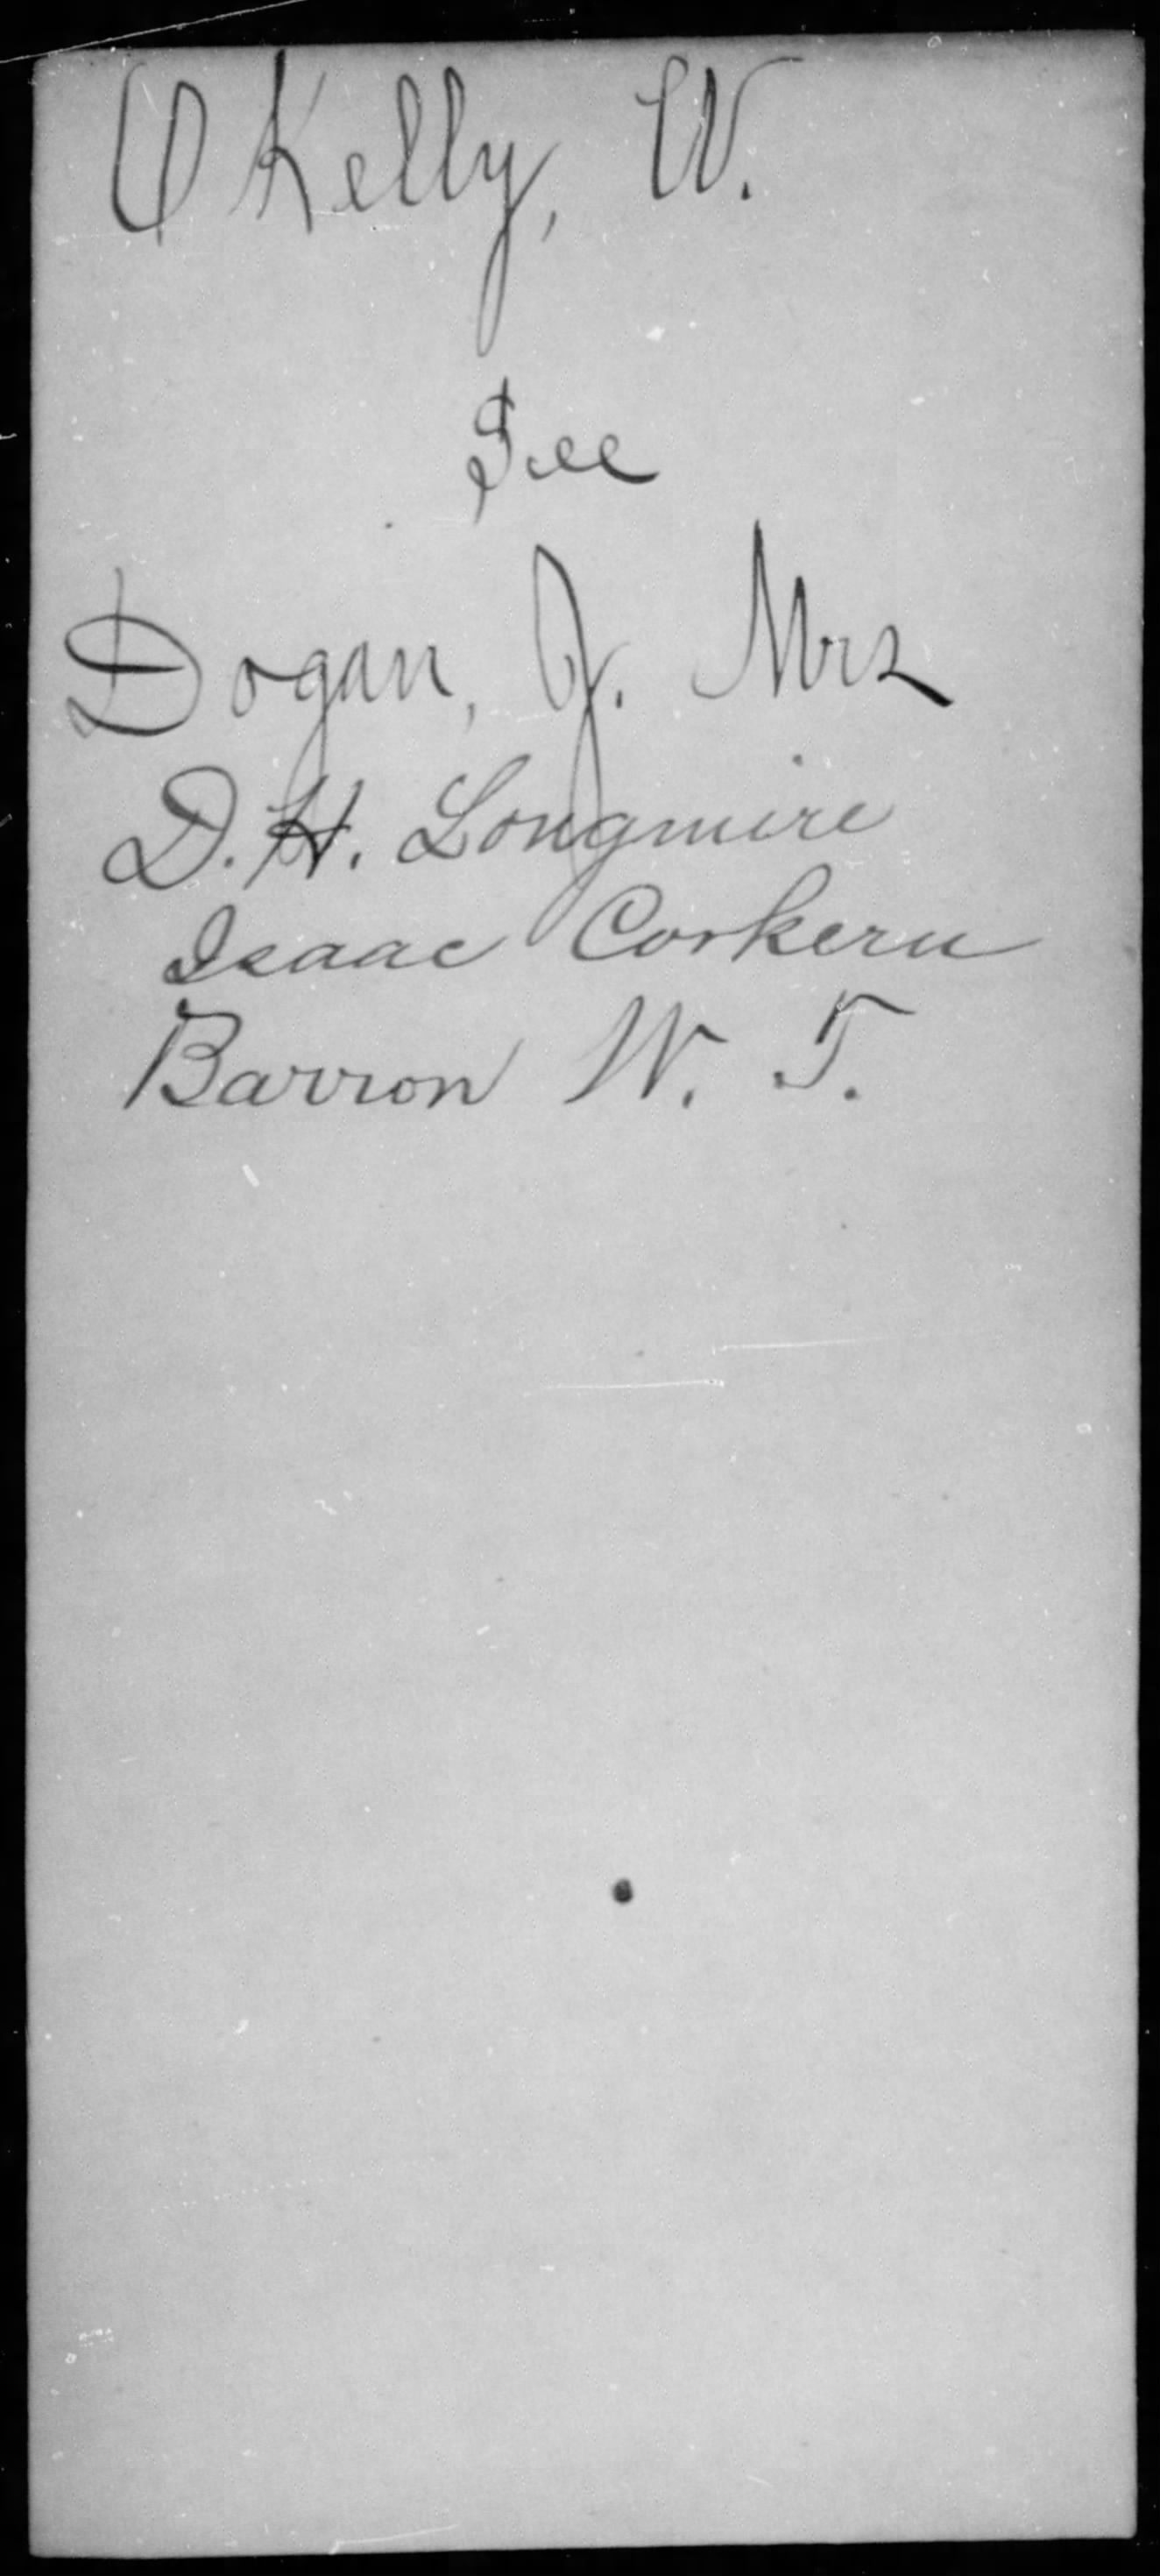 OKelly, W.
See
Dogan, J. Mrs
D. H. Longmire
Isaac Corkern
Barron W. T.